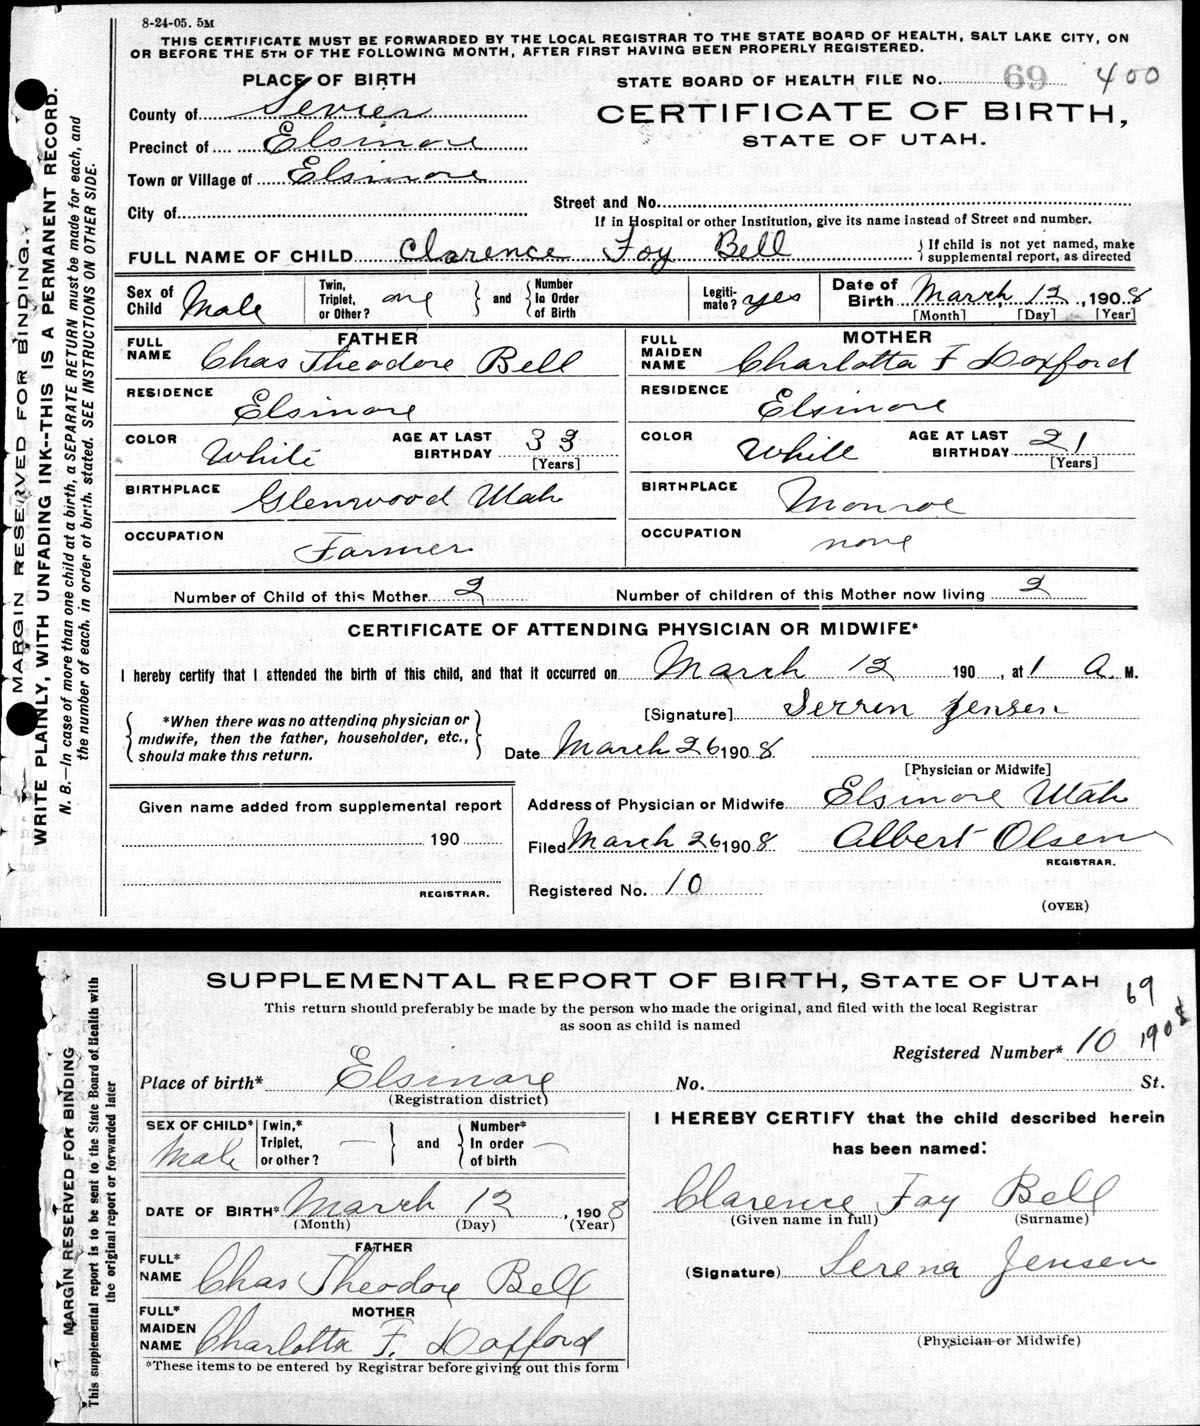 8-24-05. 5M
THIS CERTIFICATE MUST BE FORWARDED BY THE LOCAL REGISTRAR TO THE STATE BOARD OF HEALTH, SALT LAKE CITY, ON
OR BEFORE THE 5TH OF THE FOLLOWING MONTH, AFTER FIRST HAVING BEEN PROPERLY REGISTERED.
PLACE OF BIRTH
STATE BOARD OF HEALTH FILE No. 69 400
County of Sevier
CERTIFICATE OF BIRTH,
STATE OF UTAH.
Precinct of Elsinore
Town or Village of Elsinore
City of
Street and No.
If in Hospital or other Institution, give its name instead of Street and number.
FULL NAME OF CHILD Clarence Foy Bell { If child is not yet named, make
supplemental report, as directed
Sex of Child Male
Twin, Triplet, or Other? one } and { Number In Order of Birth
Legiti- mate? yes
Date of Birth March, 12, 1908
[Month] [Day] [Year]
FATHER
FULL NAME Chas Theodore Bell
MOTHER
FULL MAIDEN NAME Charlotta F Doxford
RESIDENCE Elsinore
RESIDENCE Elsinore
COLOR White AGE AT LAST BIRTHDAY 33 [Years]
COLOR White AGE AT LAST BIRTHDAY 21 [Years]
BIRTHPLACE Glenwood Utah
BIRTHPLACE Monroe
OCCUPATION Farmer
OCCUPATION none
Number of Child of this Mother 2 Number of children of this Mother now living 2
CERTIFICATE OF ATTENDING PHYSICIAN OR MIDWIFE*
I hereby certify that I attended the birth of this child, and that it occurred on March 12 190 , at 1 A. M.
{ *When there was no attending physician or
midwife, then the father, householder, etc.,
should make this return. }
[Signature] Serren Jensen
Date March 26 1908
[Physician or Midwife]
Given name added from supplemental report
190
REGISTRAR.
Address of Physician or Midwife Elsinore Utah
Filed March 26 1908 Albert Olsen
REGISTRAR.
Registered No. 10
(OVER)
MARGIN RESERVED FOR BINDING.
WRITE PLAINLY, WITH UNFADING INK--THIS IS A PERMANENT RECORD.
N. B.—In case of more than one child at a birth, a SEPARATE RETURN must be made for each, and
the number of each, in order of birth, stated. SEE INSTRUCTIONS ON OTHER SIDE.
SUPPLEMENTAL REPORT OF BIRTH, STATE OF UTAH
69
This return should preferably be made by the person who made the original, and filed with the local Registrar
as soon as child is named
Registered Number* 10 1908
Place of birth* Elsinore No. St.
(Registration district)
SEX OF CHILD* Male
Twin,* Triplet, or other? — } and { Number* In order of birth —
DATE OF BIRTH* March 12, 1908
(Month) (Day) (Year)
FATHER
FULL* NAME Chas Theodore Bell
MOTHER
FULL* MAIDEN NAME Charlotta F. Doxford
*These items to be entered by Registrar before giving out this form
I HEREBY CERTIFY that the child described herein
has been named:
Clarence Foy Bell
(Given name in full) (Surname)
(Signature) Serena Jensen
(Physician or Midwife)
MARGIN RESERVED FOR BINDING
This supplemental report is to be sent to the State Board of Health with
the original report or forwarded later